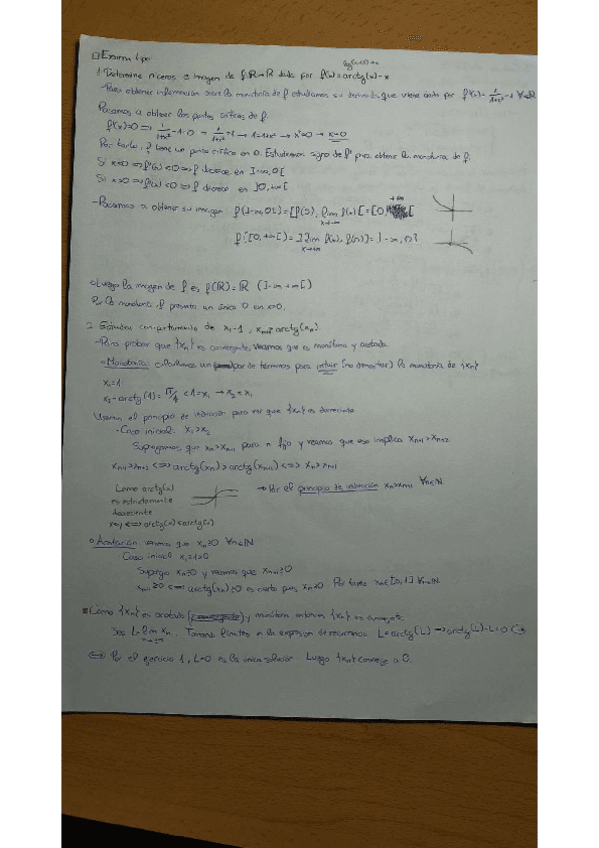 Examen tipo
1. Determine nº ceros e imagen de f:ℝ→ℝ dada por f(x)=arctg(x)-x
-Para obtener información sobre la monotonía de f estudiamos su derivada, que viene dada por f'(x)= 1/(1+x²) -1 ∀x∈ℝ
Pasamos a obtener los puntos críticos de f.
f'(x)=0 ⟹ 1/(1+x²) -1=0 → 1/(1+x²)=1 → 1=1+x² → x²=0 → x=0
Por tanto, f tiene un punto crítico en 0. Estudiemos signo de f' para obtener la monotonía de f.
Si x<0 ⟹ f'(x)<0 ⟹ f decrece en ]-∞,0[
Si x>0 ⟹ f'(x)<0 ⟹ f decrece en ]0,+∞[
-Pasamos a obtener su imagen f(]-∞,0])=[f(0), lim f(x)[=[0,+∞[
f([0,+∞[)=]lim f(x), f(0)]=]-∞,0]
x→+∞
Luego la imagen de f es f(ℝ)=ℝ (]-∞,+∞[)
Por la monotonía, f presenta un único 0 en x=0.
2. Estudiar comportamiento de x₁=1, xₙ₊₁=arctg(xₙ)
-Para probar que {xₙ} es convergente, veamos que es monótona y acotada.
Monotonía: calculamos un par de términos para intuir (no demostrar) la monotonía de {xₙ}
x₁=1
x₂=arctg(1)=π/4<1=x₁ → x₂<x₁
Usamos el principio de inducción para ver que {xₙ} es decreciente
-Caso inicial: x₁>x₂
Supongamos que xₙ>xₙ₊₁ para n fijo y veamos que eso implica xₙ₊₁>xₙ₊₂
xₙ₊₁>xₙ₊₂ ⟺ arctg(xₙ)>arctg(xₙ₊₁) ⟺ xₙ>xₙ₊₁
Como arctg(x)
es estrictamente
→ Por el principio de inducción xₙ>xₙ₊₁ ∀n∈ℕ
Acotación: veamos que xₙ≥0 ∀n∈ℕ
Caso inicial x₁=1>0
Supongo xₙ≥0 y veamos que xₙ₊₁≥0
xₙ₊₁≥0 ⟺ arctg(xₙ)≥0 es cierto pues xₙ≥0. Por tanto xₙ∈[0,1] ∀n∈ℕ
Como {xₙ} es acotada y monótona, entonces {xₙ} es convergente.
Sea L=lim xₙ. Tomando límites en la expresión de recurrencia L=arctg(L) → arctg(L)-L=0
Por el ejercicio 1, L=0 es la única solución. Luego {xₙ} converge a 0.